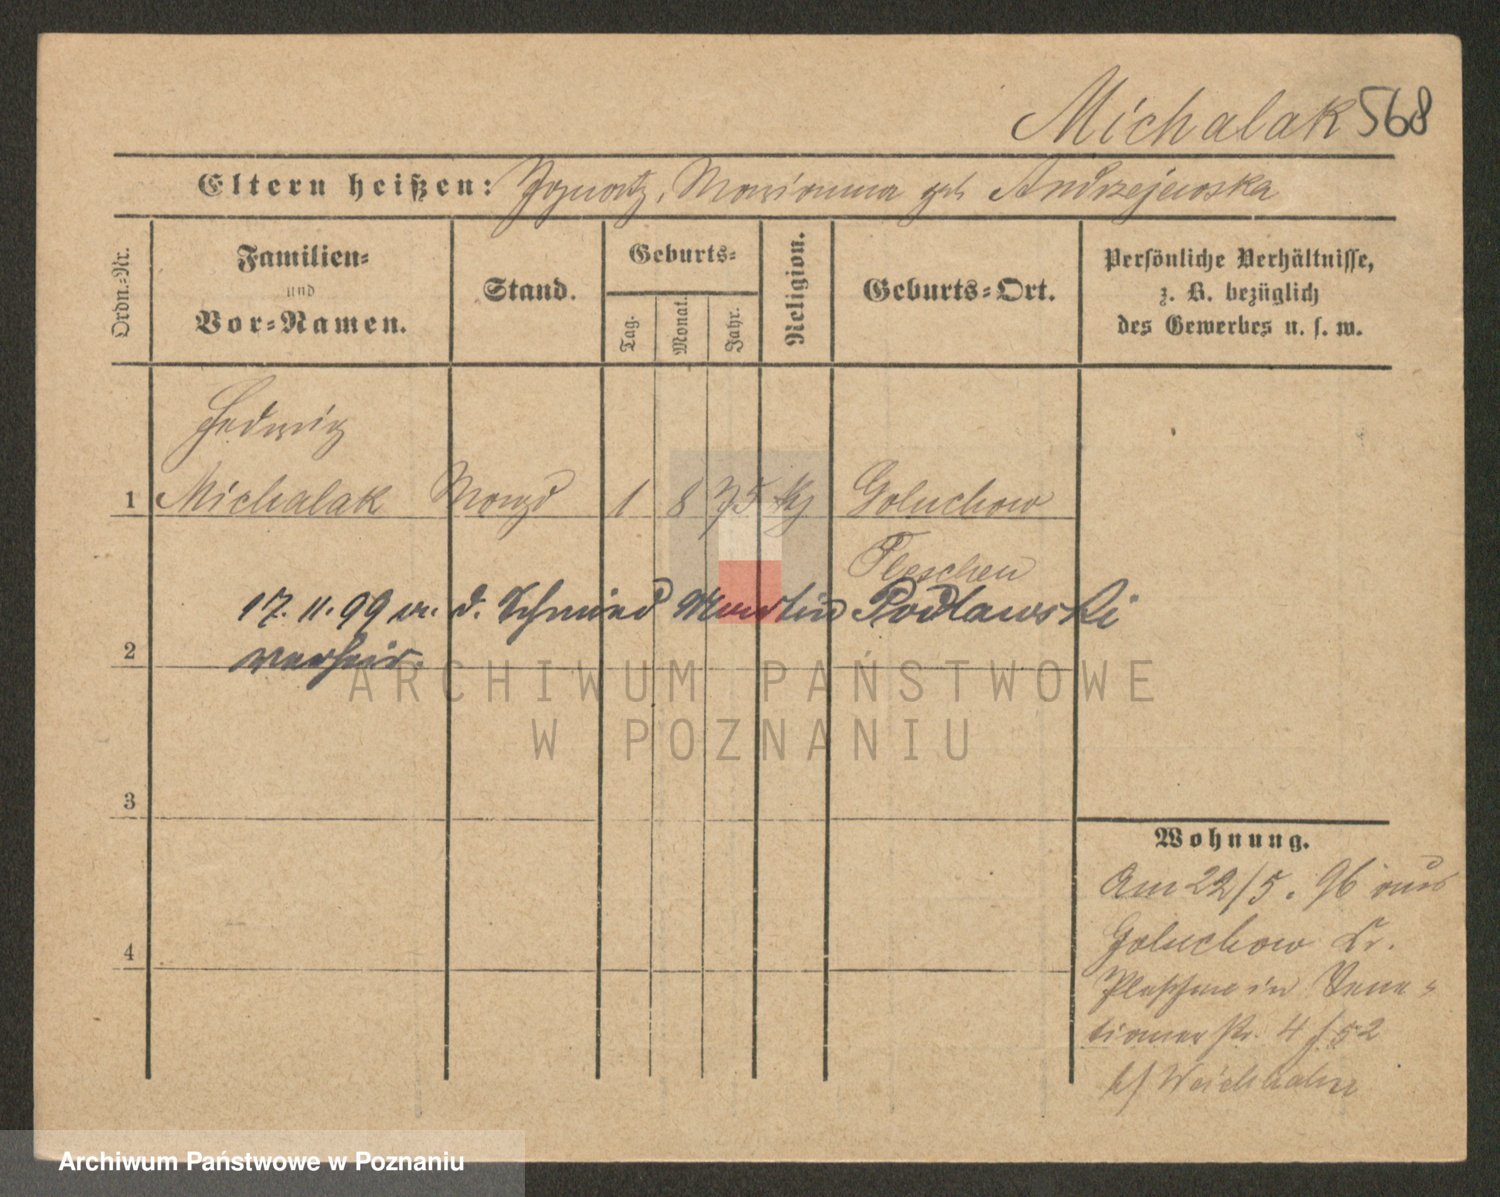 Michalak 568
Eltern heißen: Ignatz, Marianna geb Andrzejewska
Ordn.-Nr.
Familien-
und
Vor-Namen.
Stand.
Geburts-
Tag.
Monat.
Jahr.
Religion.
Geburts-Ort.
Persönliche Verhältnisse,
z. B. bezüglich
des Gewerbes u. s. w.
Hedwig
1 Michalak Magd 1 8 75 k Goluchow
Pleschen
17. 11. 99 m. d. Schmied Martin Podlawski
2 verheir.
3
4
Wohnung.
Am 22/5. 96 aus
Goluchow Kr.
Pleschen in Vene-
tianer str. 4 f 52
b/
ARCHIWUM PAŃSTWOWE
W POZNANIU
Archiwum Państwowe w Poznaniu